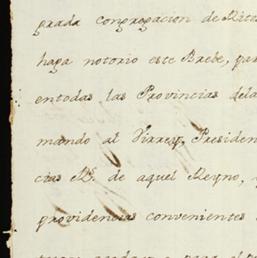 grada congregacion de Rito
haga notorio este Brebe, par
entodas las Provincias dela
mando al Virrey, Presiden
cias Rs. de aquel Reyno,
providencias convenientes